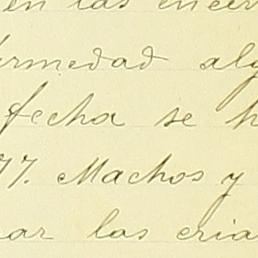 en las encer
ermedad alg
fecha se h
77. Machos y
ar las cria